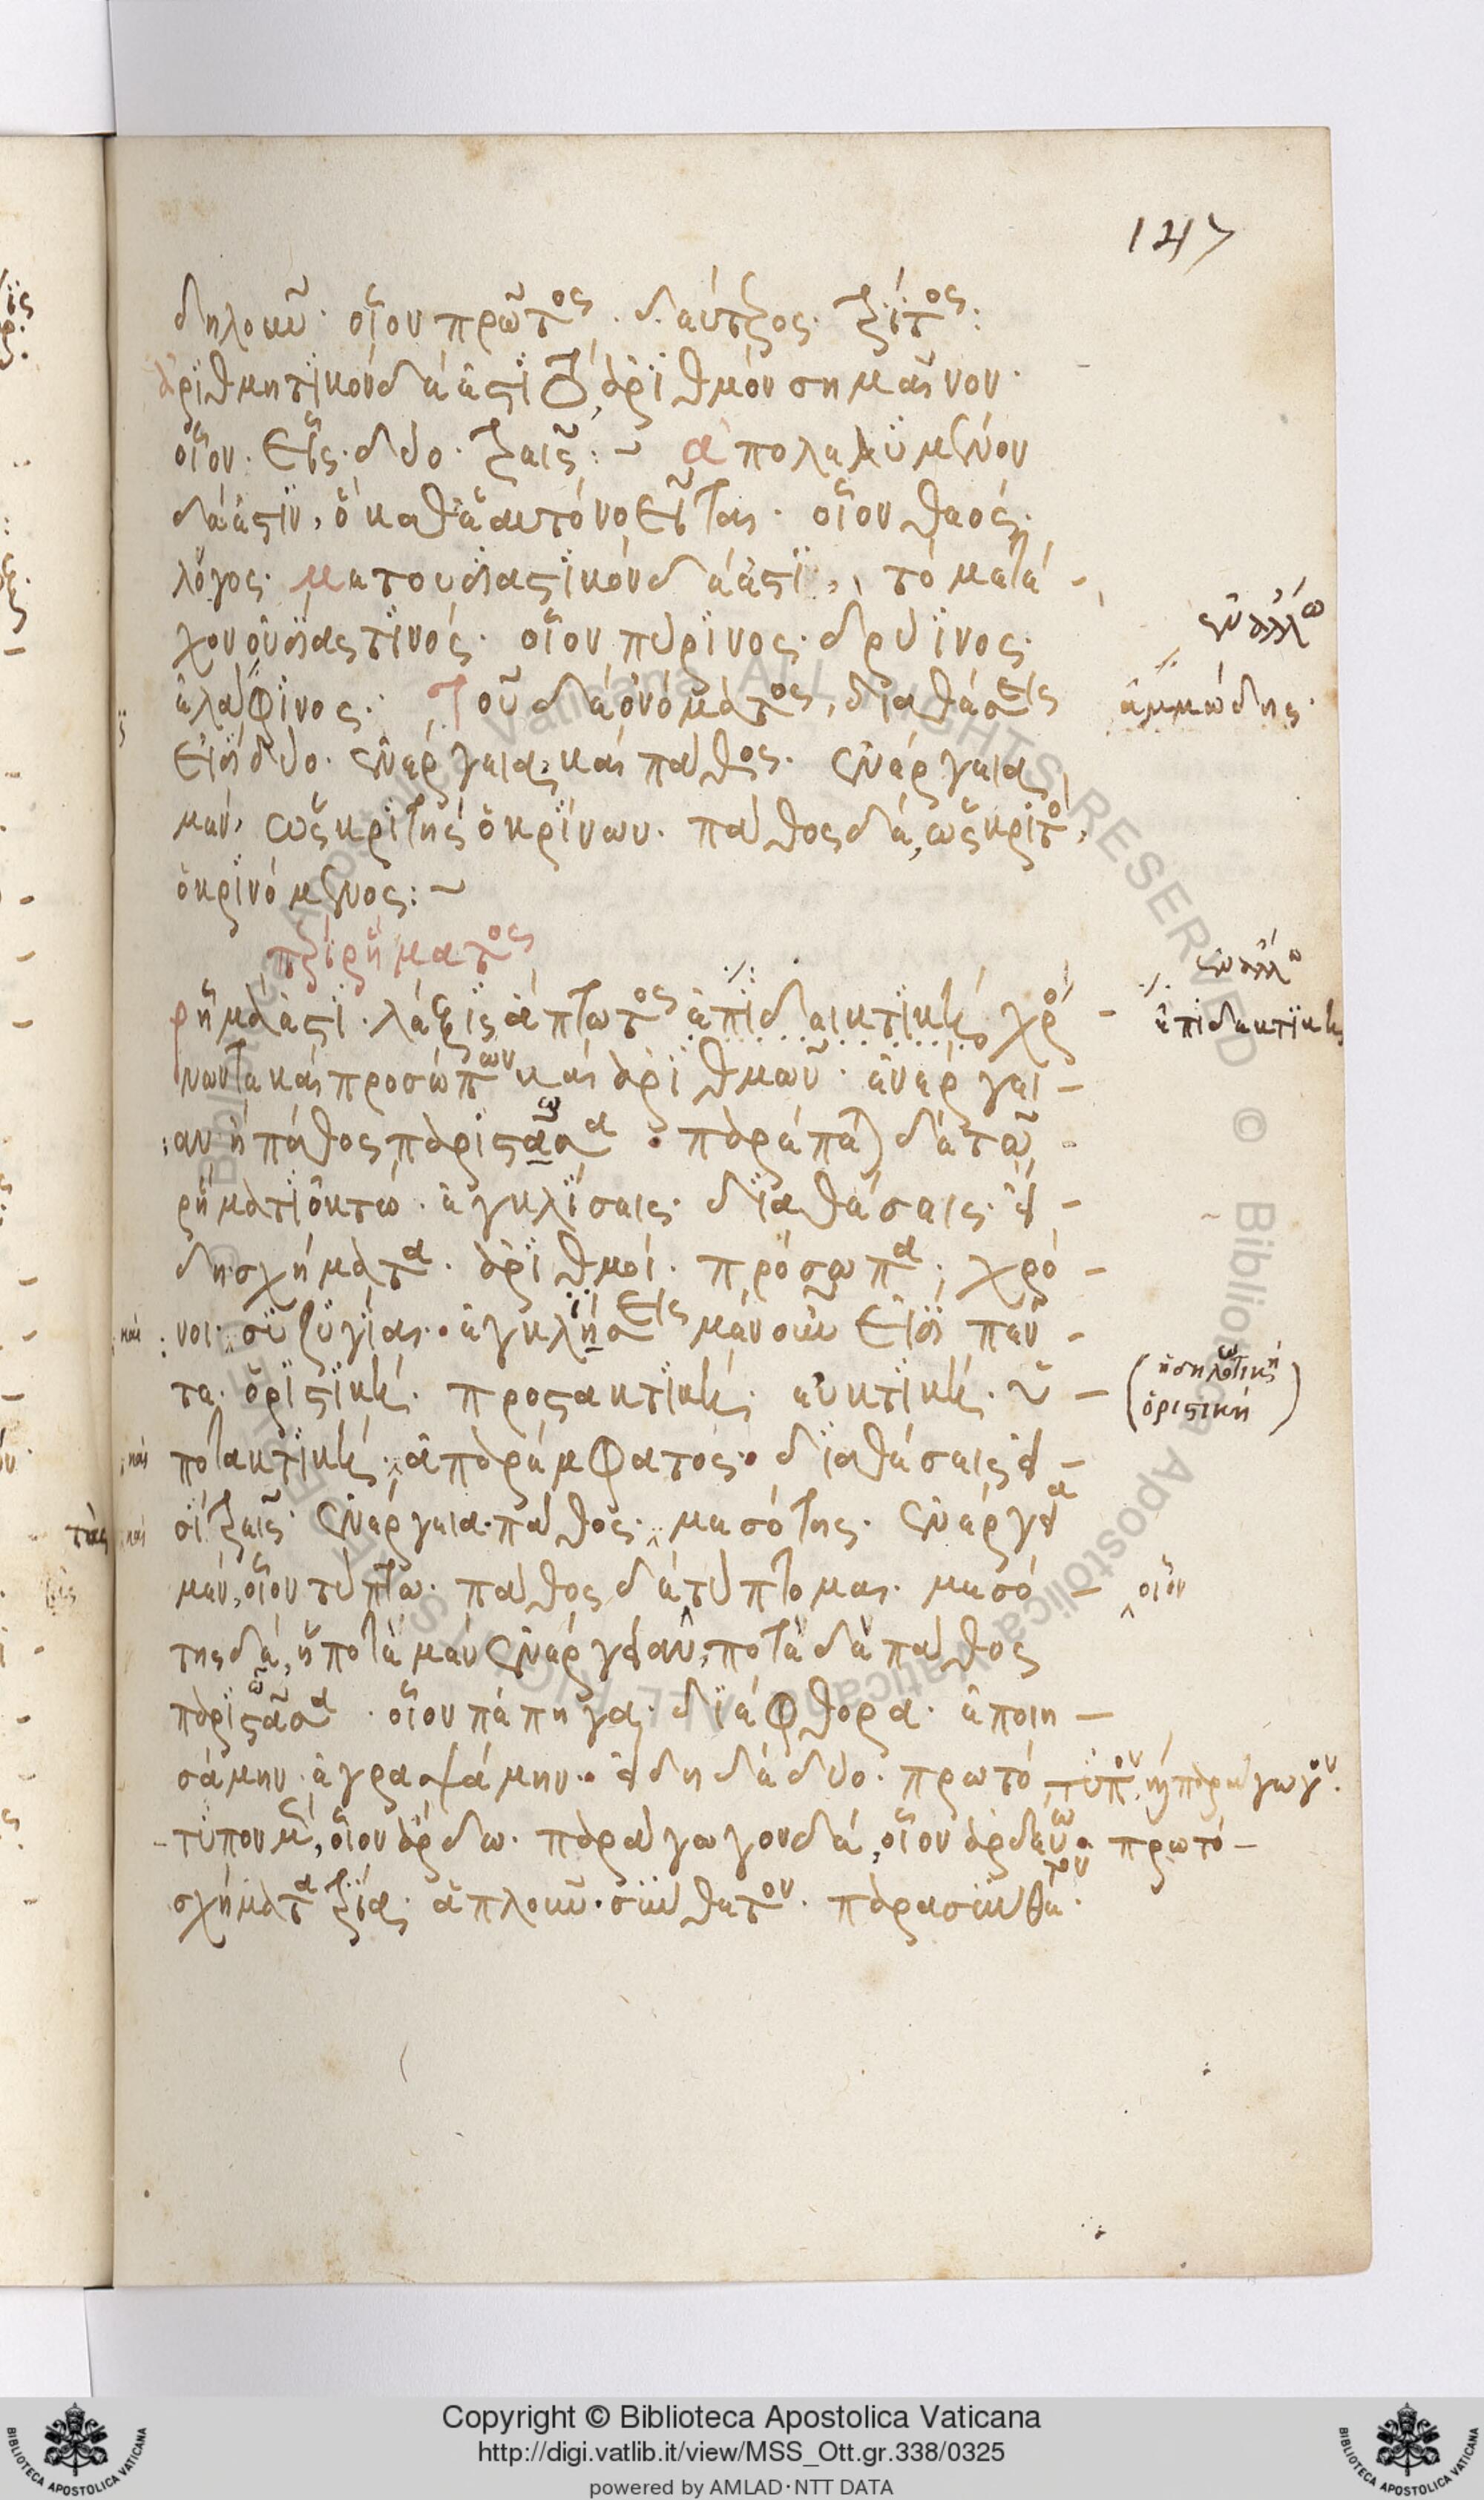 147
δηλοῦν· οἷον πρῶτος· δεύτερος· τρίτος:
ἀριθμητικὸν δέ ἐστι τὸ ἀριθμὸν σημαῖνον·
οἷον· εἷς· δύο· τρεῖς: ~ ἀπολελυμένον
δέ ἐστιν, ὃ καθ' ἑαυτὸ νοεῖται· οἷον θεός·
λόγος· μετουσιαστικὸν δέ ἐστι, τὸ μετέ-
χον οὐσίας τινός· οἷον πύρινος· δρύϊνος·
ἐν ἄλλῳ
ἐλάφινος· Τοῦ δὲ ὀνόματος, διαθέσεις
ἀμμώδης·
εἰσὶ δύο· ἐνέργεια, καὶ πάθος· ἐνέργεια
μέν, ὡς κριτὴς ὁ κρίνων· πάθος δέ, ὡς κριτός,
ὁ κρινόμενος: ~
περὶ ῥήματος
ῥῆμά ἐστι λέξις ἄπτωτος ἐπιδεικτικὴ χρό-
ἐν ἄλλῳ
ἐπιδεκτικὴ
νων τε καὶ προσώπων καὶ ἀριθμῶν· ἐνέργει-
αν ἢ πάθος παριστᾶσα· παρέπεται δὲ τῷ
ῥήματι ὀκτώ· ἐγκλίσεις· διαθέσεις· εἴ-
δη· σχήματα· ἀριθμοί· πρόσωπα· χρό-
καὶ νοι· συζυγίαι· ἐγκλήσεις μὲν οὖν εἰσὶ πέν-
τε· ὁριστική· προστακτική· εὐκτική· ὑ-
ὁριστική
καὶ ποτακτική· ἀπαρέμφατος· διαθέσεις εἰ-
καὶ σὶ τρεῖς· ἐνέργεια· πάθος· μεσότης· ἐνέργεια
μέν, οἷον τύπτω· πάθος δὲ τύπτομαι· μεσό-
οἷον
της δέ, ἡ ποτὲ μὲν ἐνέργειαν, ποτὲ δὲ πάθος
παριστᾶσα· οἷον πέπηγα· διέφθορα· ἐποιη-
σάμην· ἐγραψάμην· εἴδη δὲ δύο· πρωτότυπον, καὶ παράγωγον·
τυπον μέν, οἷον ἄρδω· παράγωγον δέ, οἷον ἀρδεύω· πρωτό-
σχήματα τρία· ἁπλοῦν· σύνθετον· παρασύνθετον·
Copyright © Biblioteca Apostolica Vaticana
http://digi.vatlib.it/view/MSS_Ott.gr.338/0325
powered by AMLAD·NTT DATA